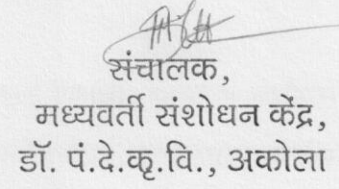 संचालक,
मध्यवर्ती संशोधन केंद्र,
डॉ. पं.दे.कृ.वि., अकोला